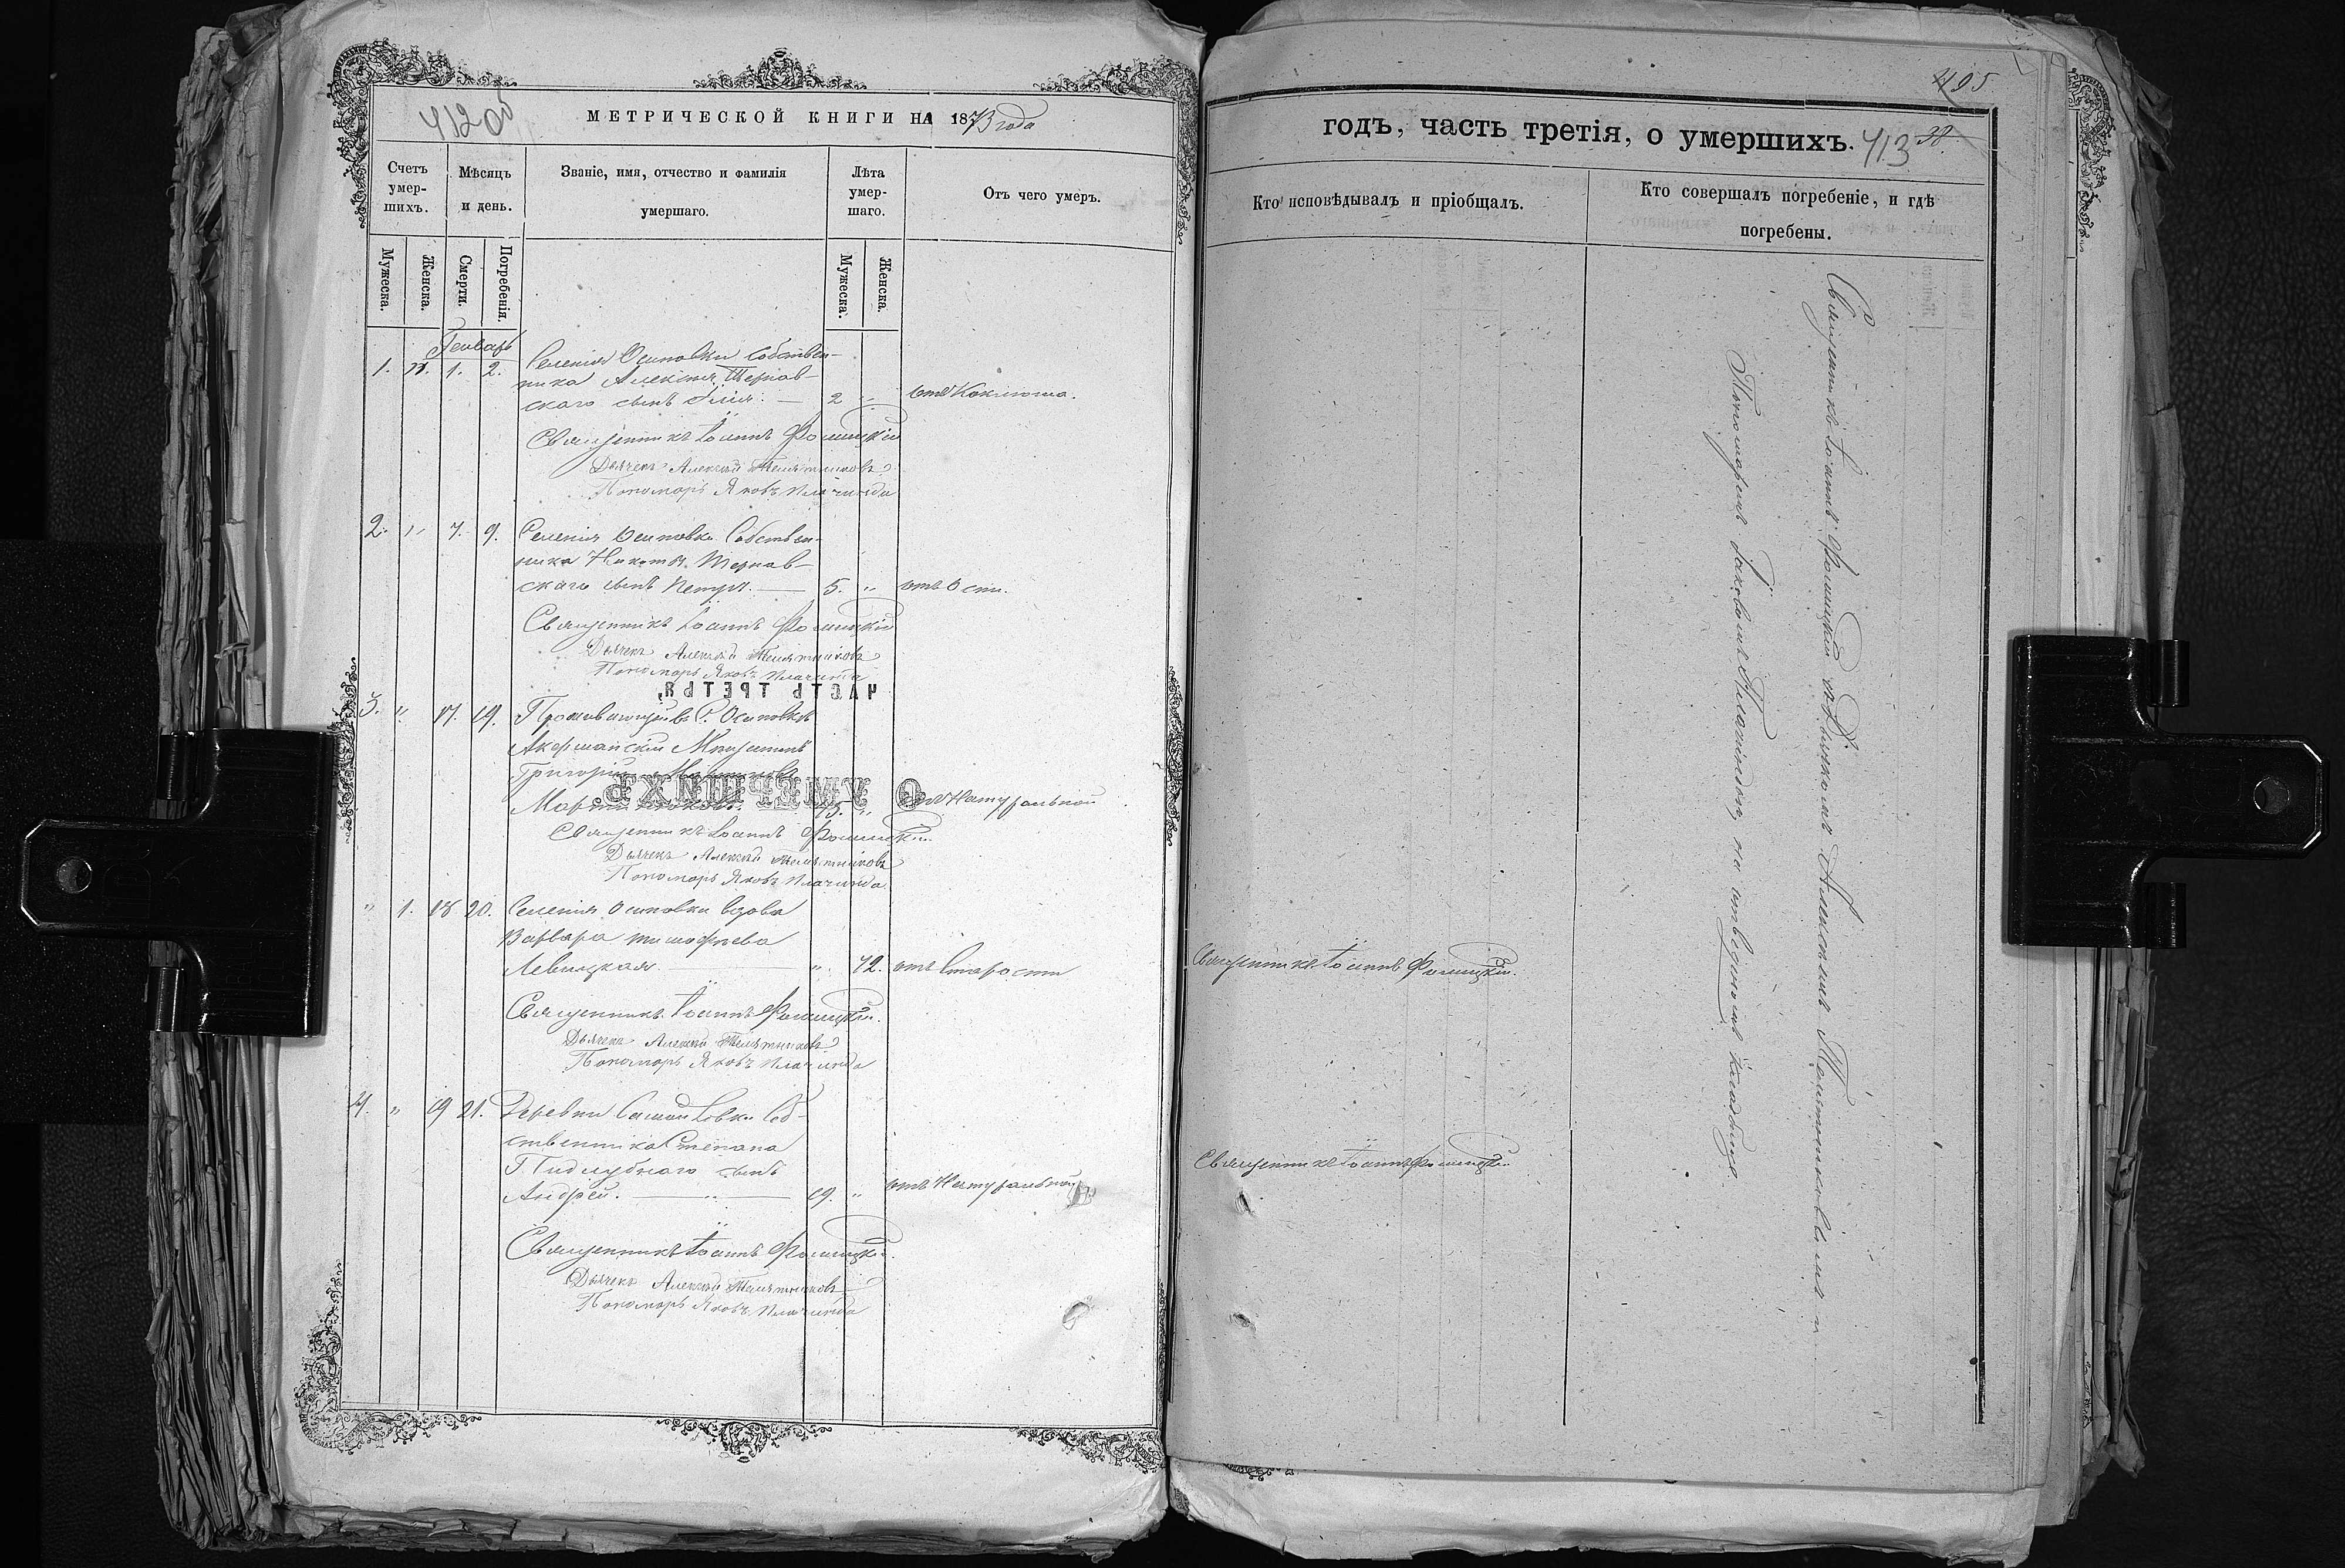 МЕТРИЧЕСКОЙ КНИГИ НА 1873 года
Счетъ умер-шихъ.
Мѣсяцъ и день.
Званіе, имя, отчество и фамилія умершаго.
Лѣта умер-шаго.
Отъ чего умеръ.
Мужеска.
Женска.
Смерти.
Погребенія.
Мужеска.
Женска.
Генварь
1. 1. 2. Селенія Осиповки Собствен-
ника Алексея Тернав-
скаго сынъ Илія. — 2 „ отъ Коклюша.
Священникъ Іоаннъ Фомицкій
Дьячекъ Алексѣй Телятниковъ
Пономарь Яковъ Плачинда
2. „ 7. 9. Селенія Осиповки Собствен-
ника Никиты Тернав-
скаго сынъ Петръ. — 5. „ отъ Оспи.
Священникъ Іоаннъ Фомицкій
Дьячекъ Алексѣй Телятниковъ
Пономарь Яковъ Плачинда
ЧАСТЬ ТРЕТЬЯ,
3. „ 17. 19. Проживающій въ С. Осиповкѣ
Акерманскій Мѣщанинъ
Григорій
О УМЕРШИХЪ.
45. „ отъ Натуральной
Священникъ Іоаннъ Фомицкій
Дьячекъ Алексѣй Телятниковъ
Пономарь Яковъ Плачинда
„ 1. 18 20. Селенія Осиповки вдова
Варвара Тимофѣева
Левицкая. — „ 72. отъ Старости
Священникъ Іоаннъ Фомицкій.
Дьячекъ Алексѣй Телятниковъ
Пономарь Яковъ Плачинда
4. „ 19 21. Деревни Самойловки Соб-
ственника Степана
Пидлубнаго сынъ
Андрей. — 19. „ отъ Натуральной
Священникъ Іоаннъ Фомицкій.
Дьячекъ Алексѣй Телятниковъ
Пономарь Яковъ Плачинда
405
годъ, часть третія, о умершихъ. 413
Кто исповѣдывалъ и пріобщалъ.
Кто совершалъ погребеніе, и гдѣ погребены.
Священникъ Іоаннъ Фомицкій.
Священникъ Іоаннъ Фомицкій
Священникъ Іоаннъ Фомицкій съ Дьячкомъ Алексѣемъ Телятниковымъ и
Пономаремъ Іаковомъ Плачиндою, на отведенномъ кладбищѣ.